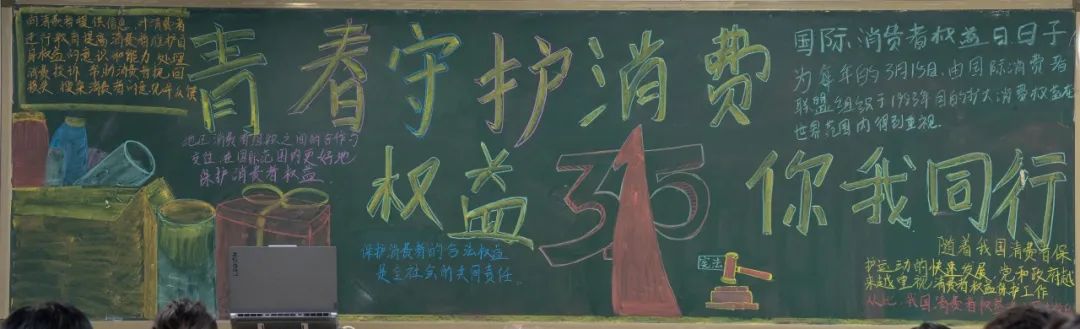 向消费者提供信息，对消费者
进行教育提高消费者维护自
身权益的意识和能力，处理
消费投诉，帮助消费者挽回
损失，搜集消费者的
青春守护消费
权益 315 你我同行
国际消费者权益日日子
为每年的3月15日，由国际消费者
联盟组织于1983年 目的扩大消费权益在
世界范围内得到重视
地区消费者组织之间的合作与
交往，在国际范围内更好地
保护消费者权益
保护消费者的合法权益
是全社会的共同责任.
宪法
随着我国消费者保
护运动的快速发展，党和政府越
来越重视消费者权益保护工作
从此，我国消费者权益
Lenovo